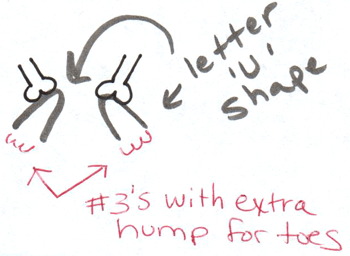 letter
'U'
shape
#3's with extra
hump for toes